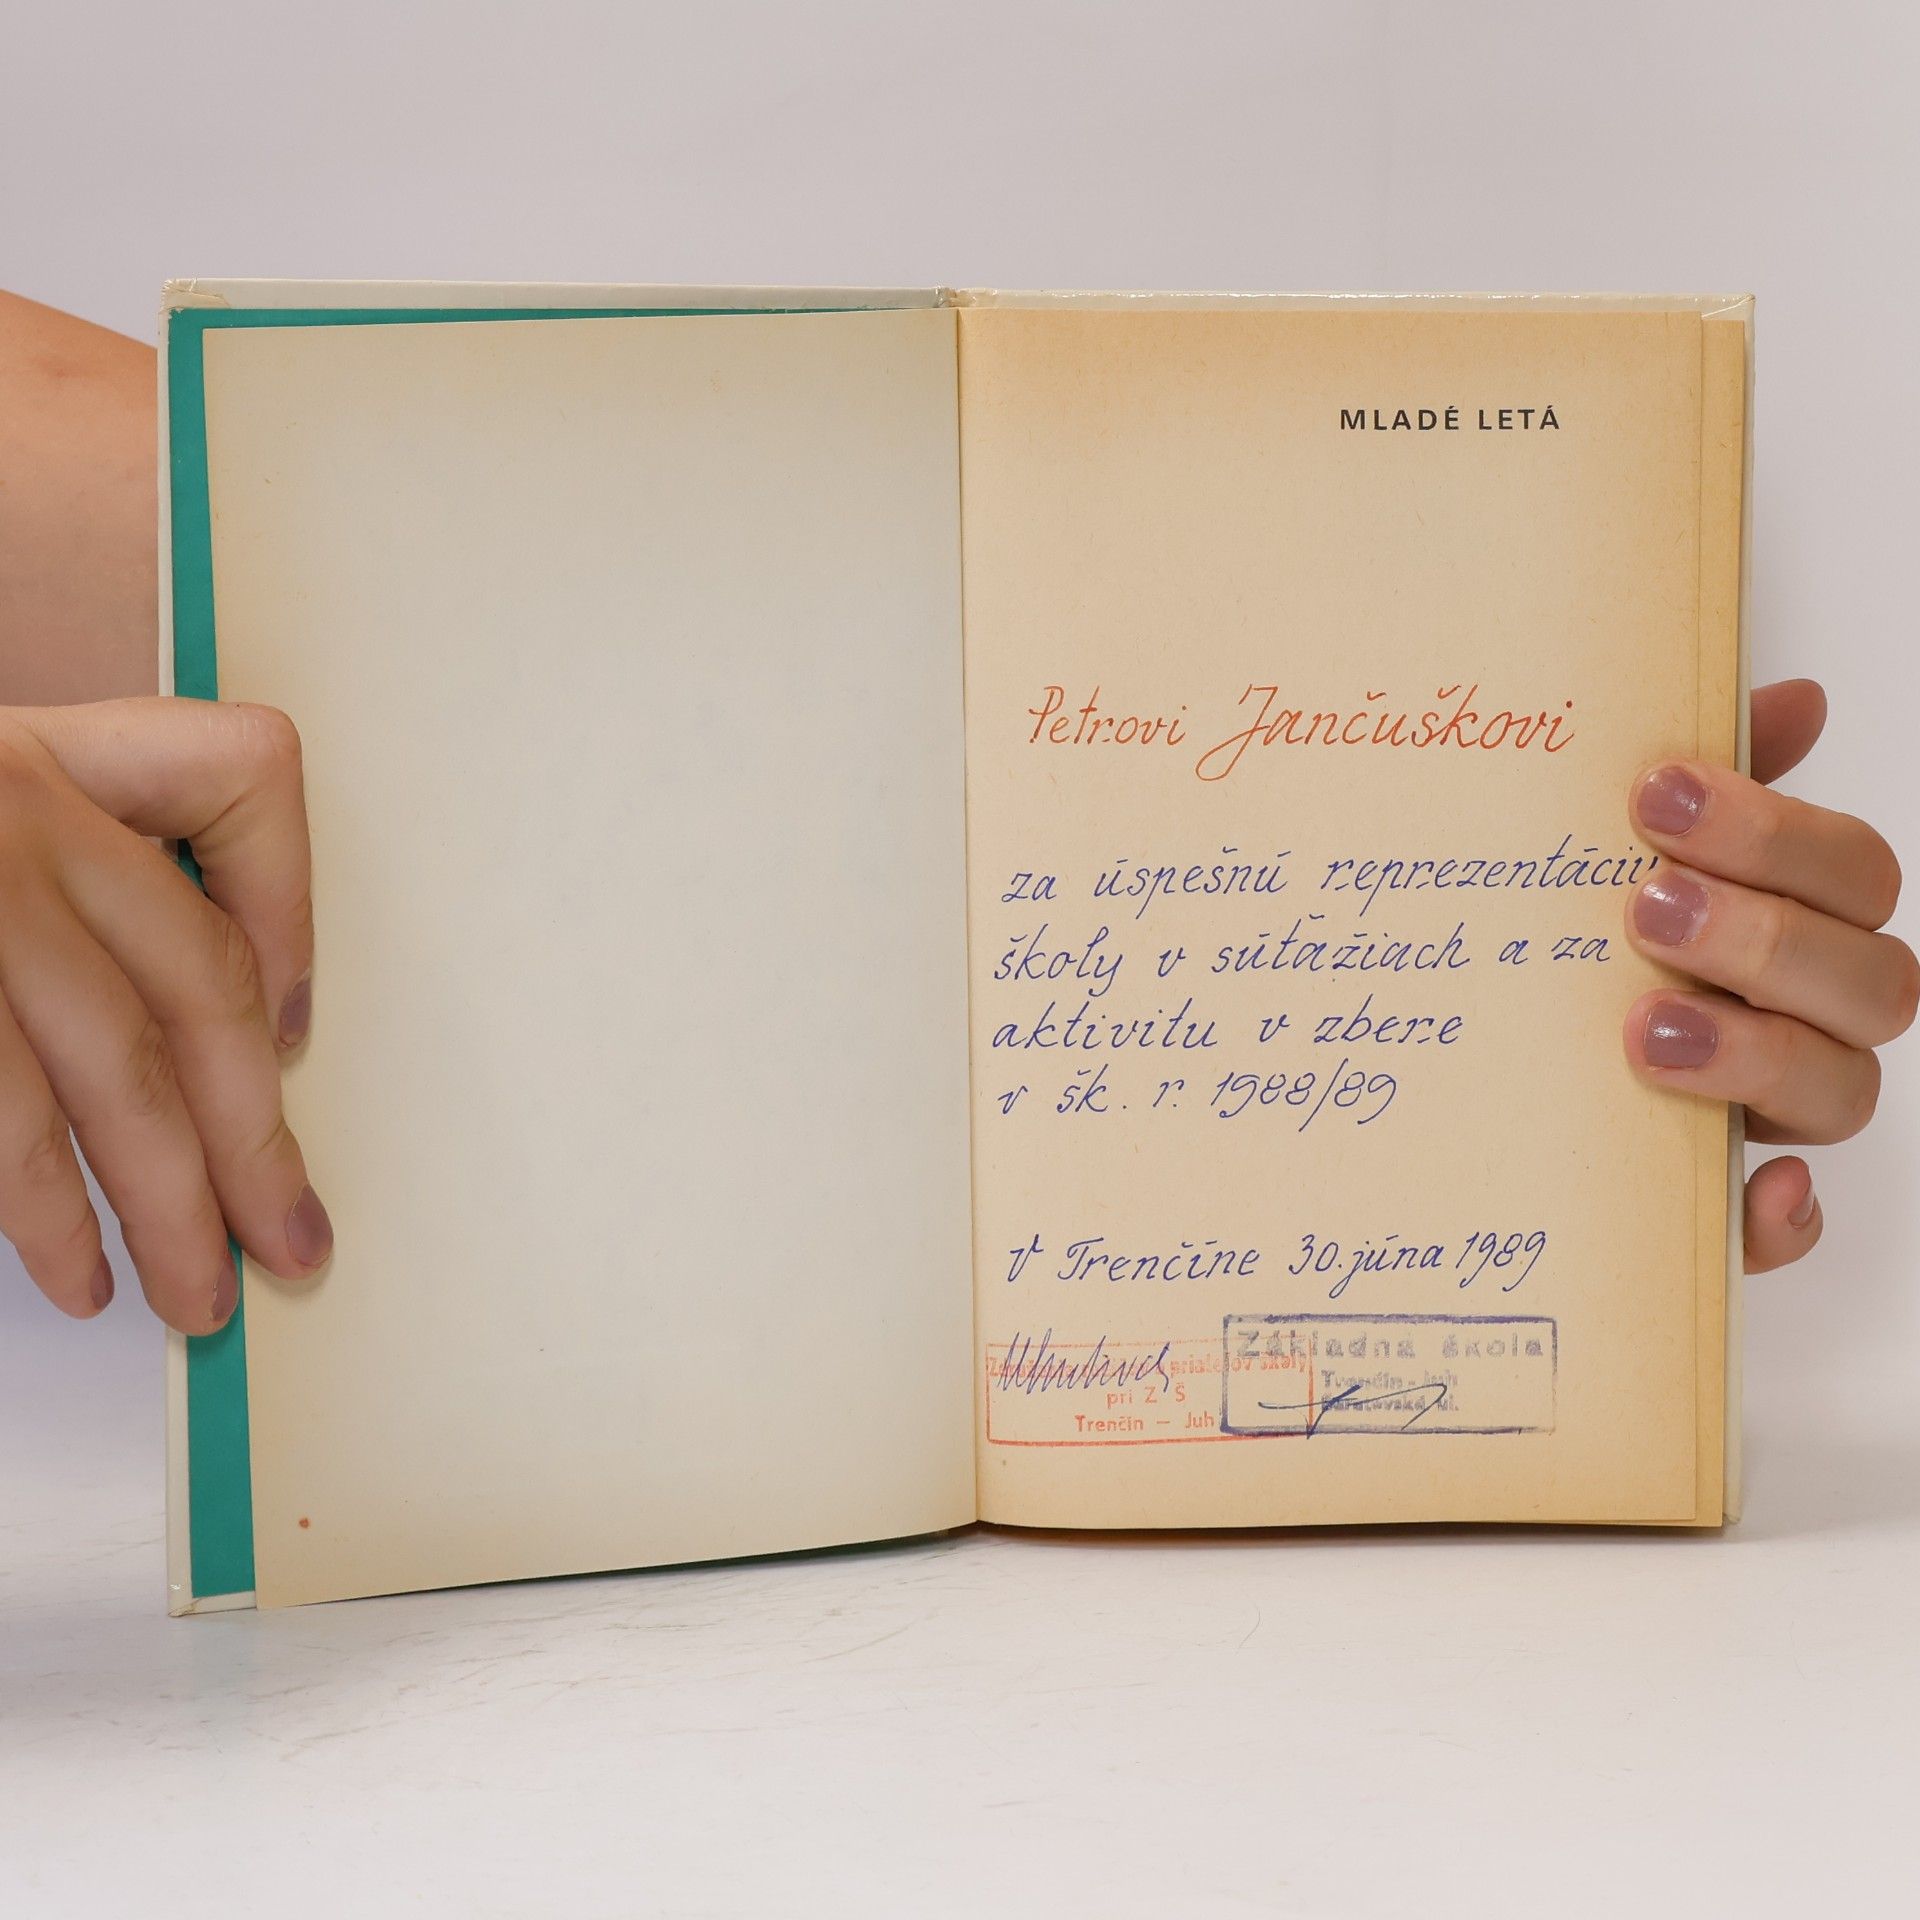 MLADÉ LETÁ
Petrovi Jančuškovi
za úspešnú reprezentáciu
školy v súťažiach a za
aktivitu v zbere
v šk. r. 1988/89
V Trenčíne 30. júna 1989
priateľov školy
pri Z Š
Trenčín — Juh
Základná škola
Trenčín - Juh
ul.